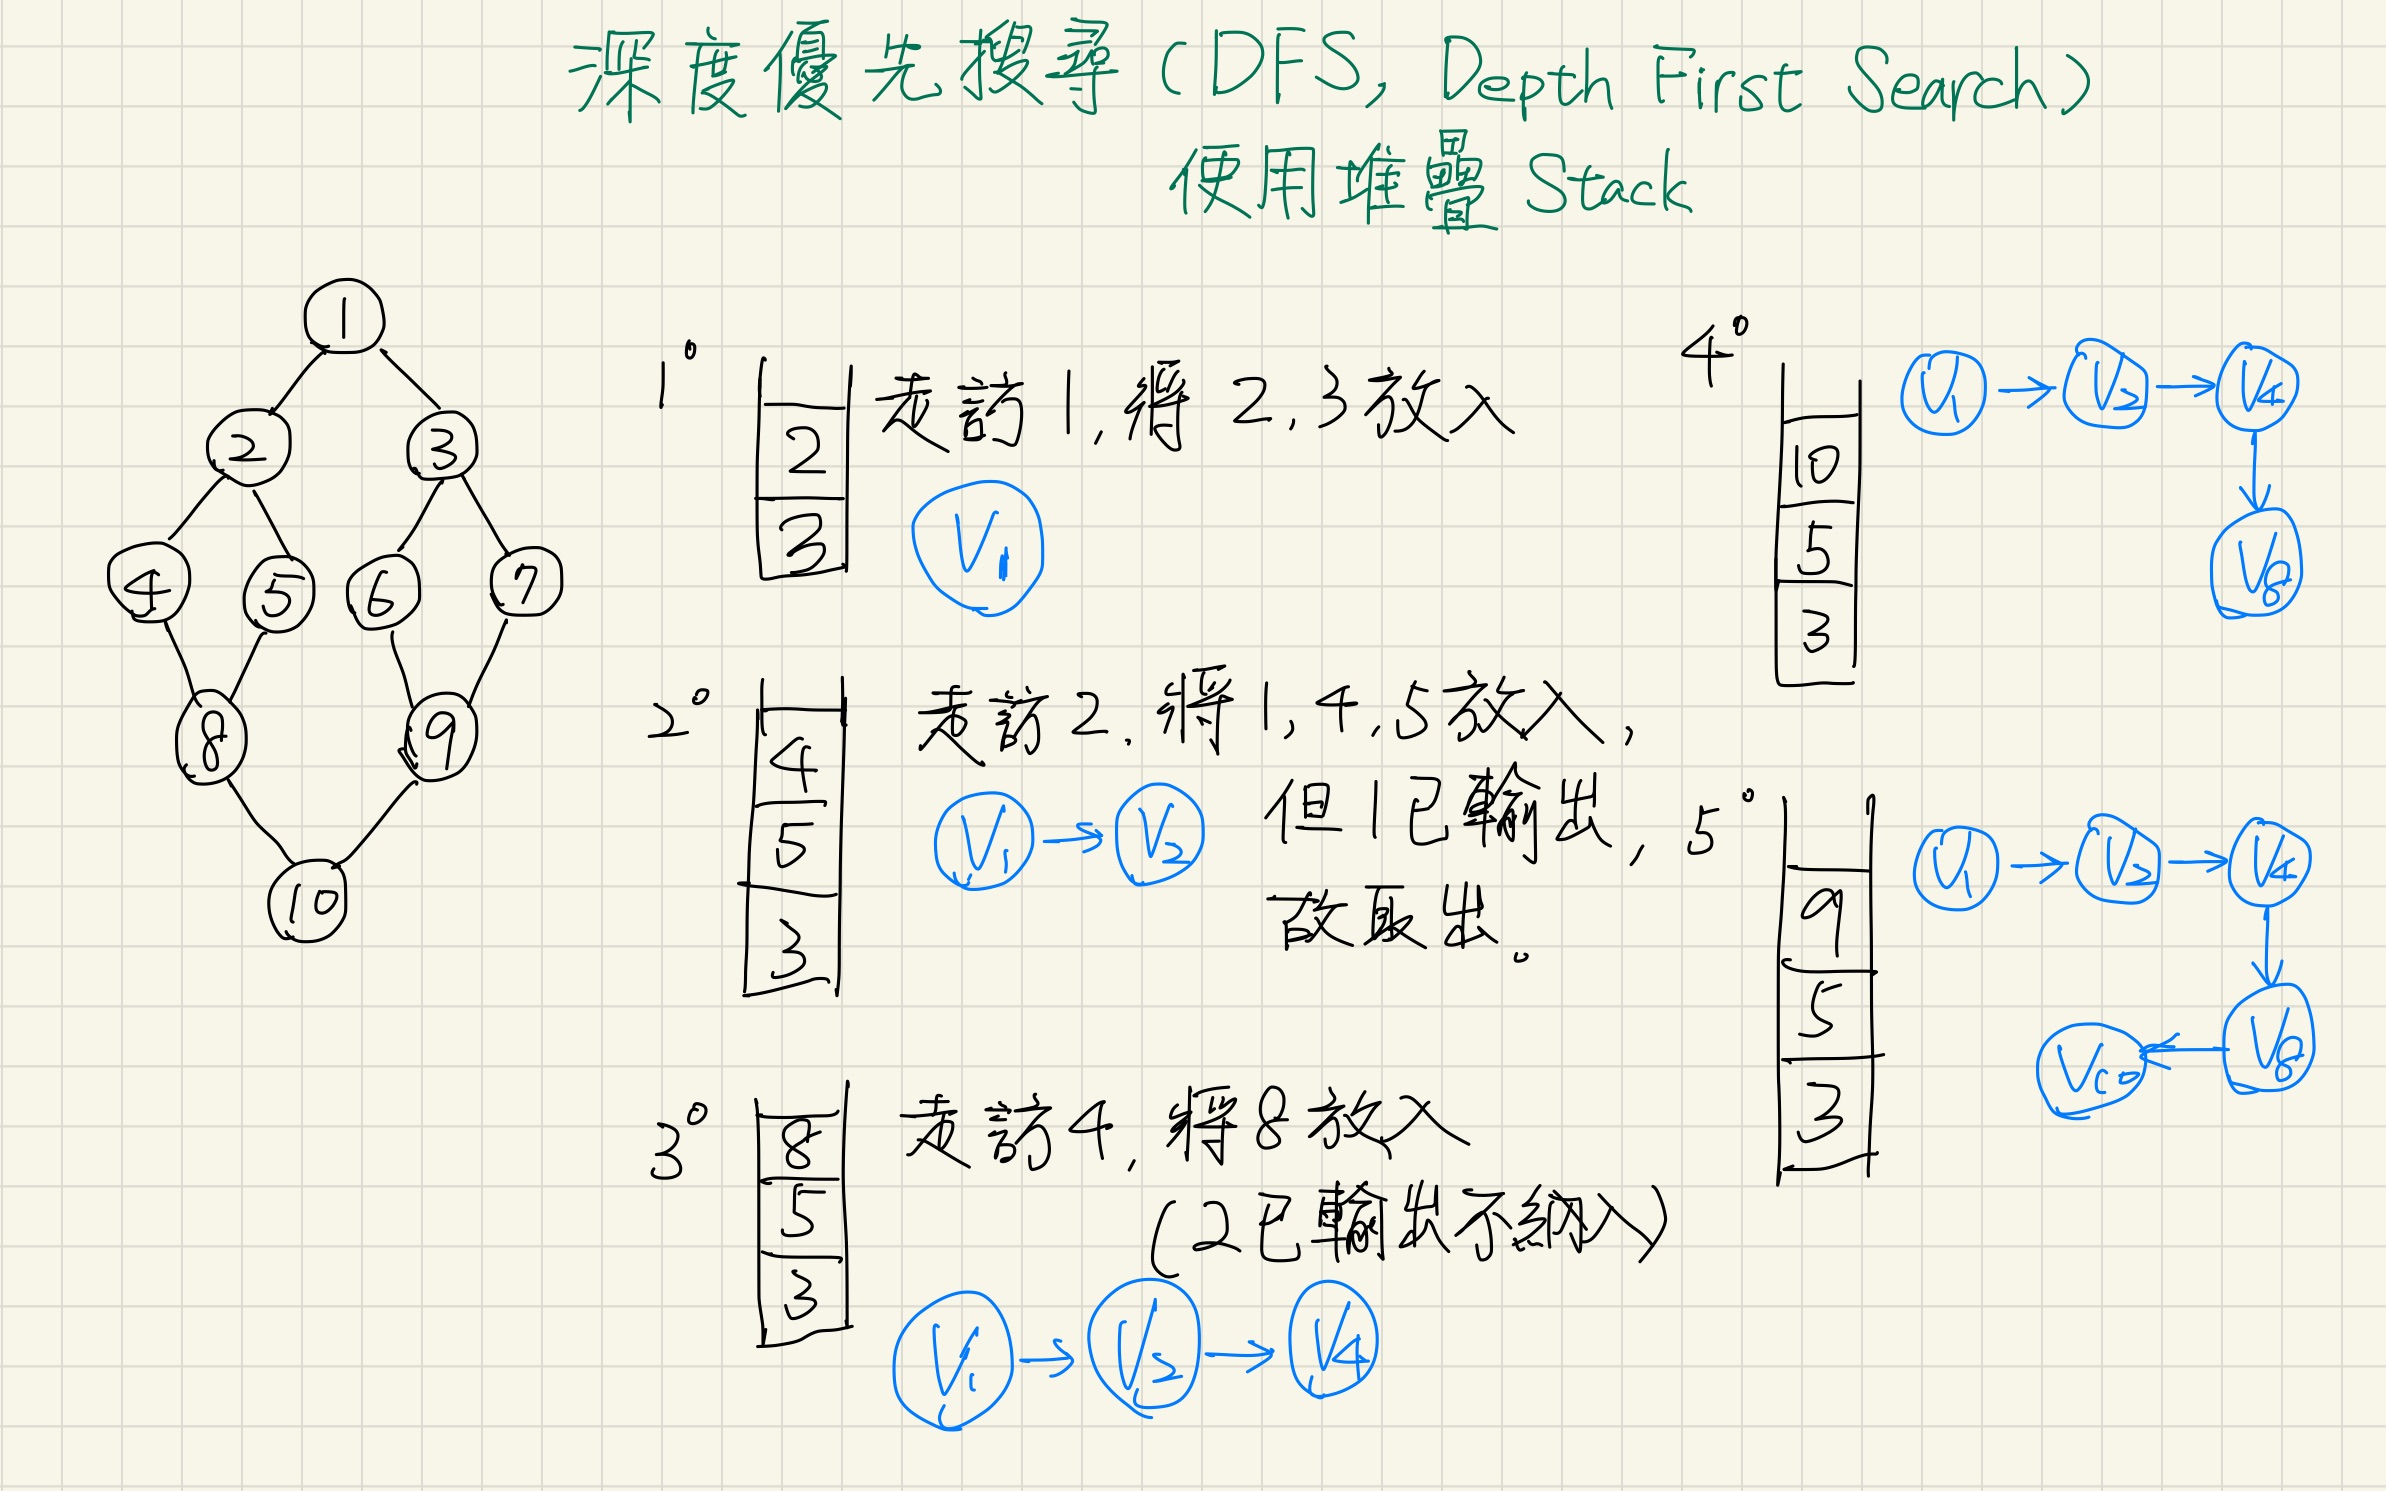 深度優先搜尋(DFS, Depth First Search)
使用堆疊 Stack
1
2
3
4
5
6
7
8
9
10
1°
2
3
走訪1,將2,3放入
V1
2°
4
5
3
走訪2,將1,4,5放入,
但1已輸出,
故取出。
V1 → V2
3°
8
5
3
走訪4,將8放入
(2已輸出不納入)
V1 → V2 → V4
4°
10
5
3
V1 → V2 → V4
V8
5°
9
5
3
V1 → V2 → V4
V10 ← V8